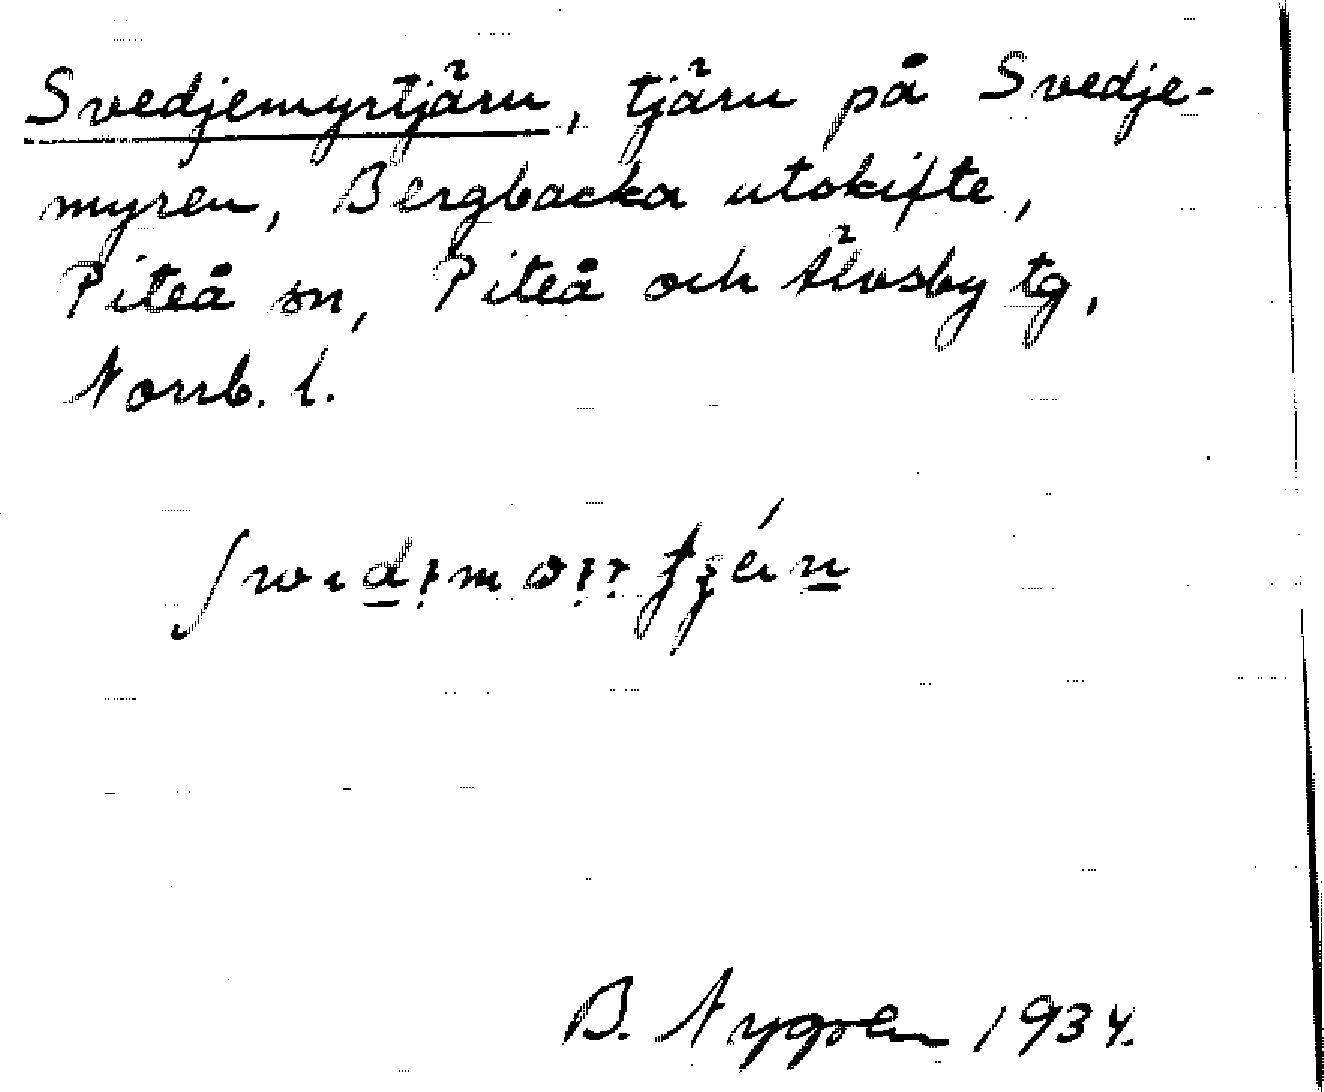 Svedjemyrtjärn, tjärn på Svedje-
myren, Bergbacka utskifte,
Piteå sn, Piteå och Älvsby tg,
Norrb. l.
B. Nygren 1934.